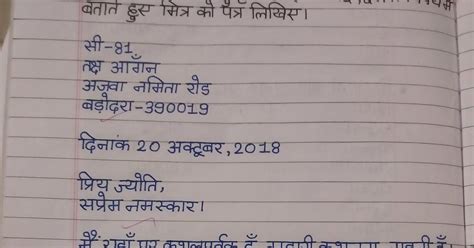 बताते हुए मित्र को पत्र लिखिए।
सी-81
तक्ष आँगन
अजवा नमिता रोड
बड़ोदरा-390019
दिनांक 20 अक्टूबर, 2018
प्रिय ज्योति,
सप्रेम नमस्कार।
मैं यहाँ पर कुशलपूर्वक हूँ